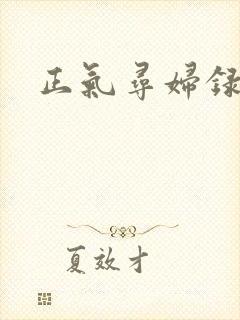 正氣尋婦録
夏效才